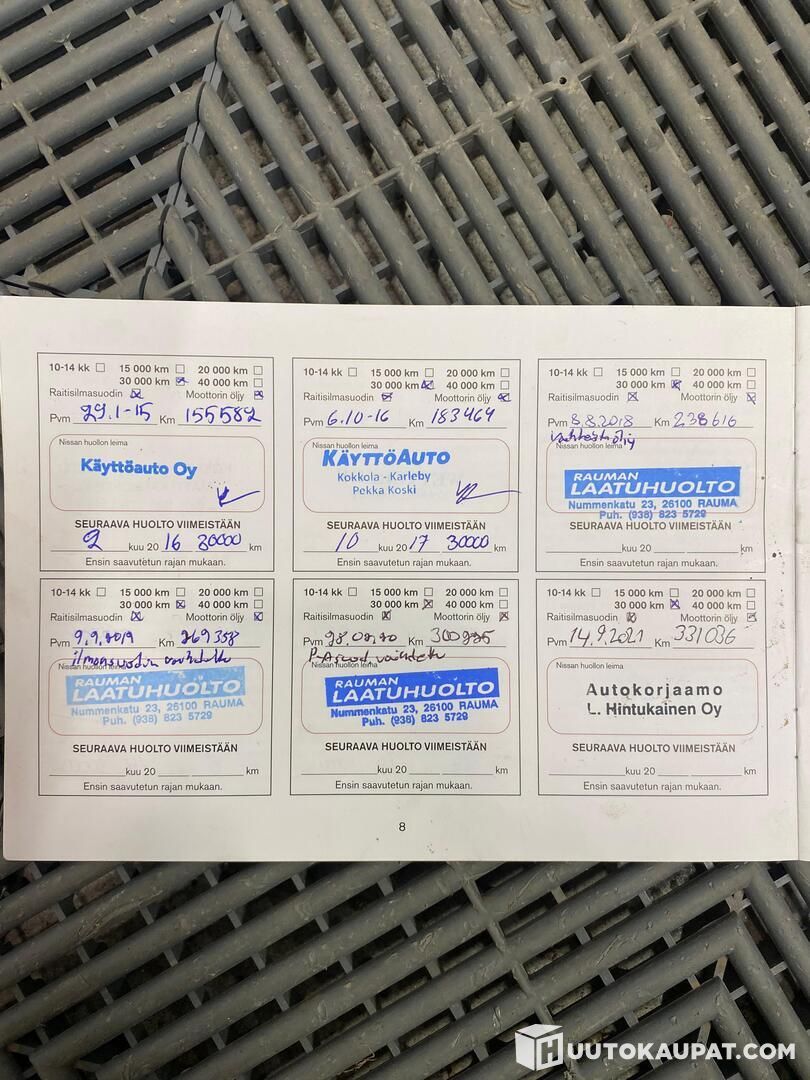 10-14 kk 15 000 km 20 000 km
30 000 km 40 000 km
Raitisilmasuodin Moottorin öljy
Pvm 29.1-15 Km 155582
Nissan huollon leima
Käyttöauto Oy
SEURAAVA HUOLTO VIIMEISTÄÄN
2 kuu 20 16 30000 km
Ensin saavutetun rajan mukaan.
10-14 kk 15 000 km 20 000 km
30 000 km 40 000 km
Raitisilmasuodin Moottorin öljy
Pvm 6.10-16 Km 183464
Nissan huollon leima
KÄYTTÖAUTO
Kokkola - Karleby
Pekka Koski
SEURAAVA HUOLTO VIIMEISTÄÄN
10 kuu 20 17 30000 km
Ensin saavutetun rajan mukaan.
10-14 kk 15 000 km 20 000 km
30 000 km 40 000 km
Raitisilmasuodin Moottorin öljy
Pvm 8.8.2018 Km 238616
Nissan huollon leima
RAUMAN
LAATUHUOLTO
Nummenkatu 23, 26100 RAUMA
Puh. (938) 823 5729
SEURAAVA HUOLTO VIIMEISTÄÄN
kuu 20 km
Ensin saavutetun rajan mukaan.
10-14 kk 15 000 km 20 000 km
30 000 km 40 000 km
Raitisilmasuodin Moottorin öljy
Pvm 9.9.2019 Km 269358
ilmansuodin vaihdettu
Nissan huollon leima
RAUMAN
LAATUHUOLTO
Nummenkatu 23, 26100 RAUMA
Puh. (938) 823 5729
SEURAAVA HUOLTO VIIMEISTÄÄN
kuu 20 km
Ensin saavutetun rajan mukaan.
10-14 kk 15 000 km 20 000 km
30 000 km 40 000 km
Raitisilmasuodin Moottorin öljy
Pvm Km
Nissan huollon leima
RAUMAN
LAATUHUOLTO
Nummenkatu 23, 26100 RAUMA
Puh. (938) 823 5729
SEURAAVA HUOLTO VIIMEISTÄÄN
kuu 20 km
Ensin saavutetun rajan mukaan.
10-14 kk 15 000 km 20 000 km
30 000 km 40 000 km
Raitisilmasuodin Moottorin öljy
Pvm 14.9.2021 Km 331036
Nissan huollon leima
Autokorjaamo
L. Hintukainen Oy
SEURAAVA HUOLTO VIIMEISTÄÄN
kuu 20 km
Ensin saavutetun rajan mukaan.
8
HUUTOKAUPAT.COM